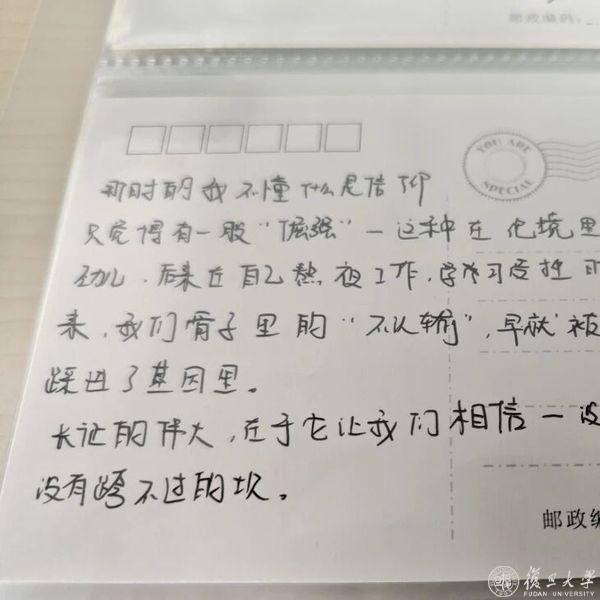 邮政编码:
YOU ARE SPECIAL
那时的我不懂什么是信仰
只觉得有一股"倔强"—这种在绝境里
劲儿,后来在自己熬夜工作,学习受挫时
来,我们骨子里的"不认输",早就被
踩进了基因里。
长征的伟大,在于它让我们相信—没
没有跨不过的坎。
邮政编
復旦大學
FUDAN UNIVERSITY